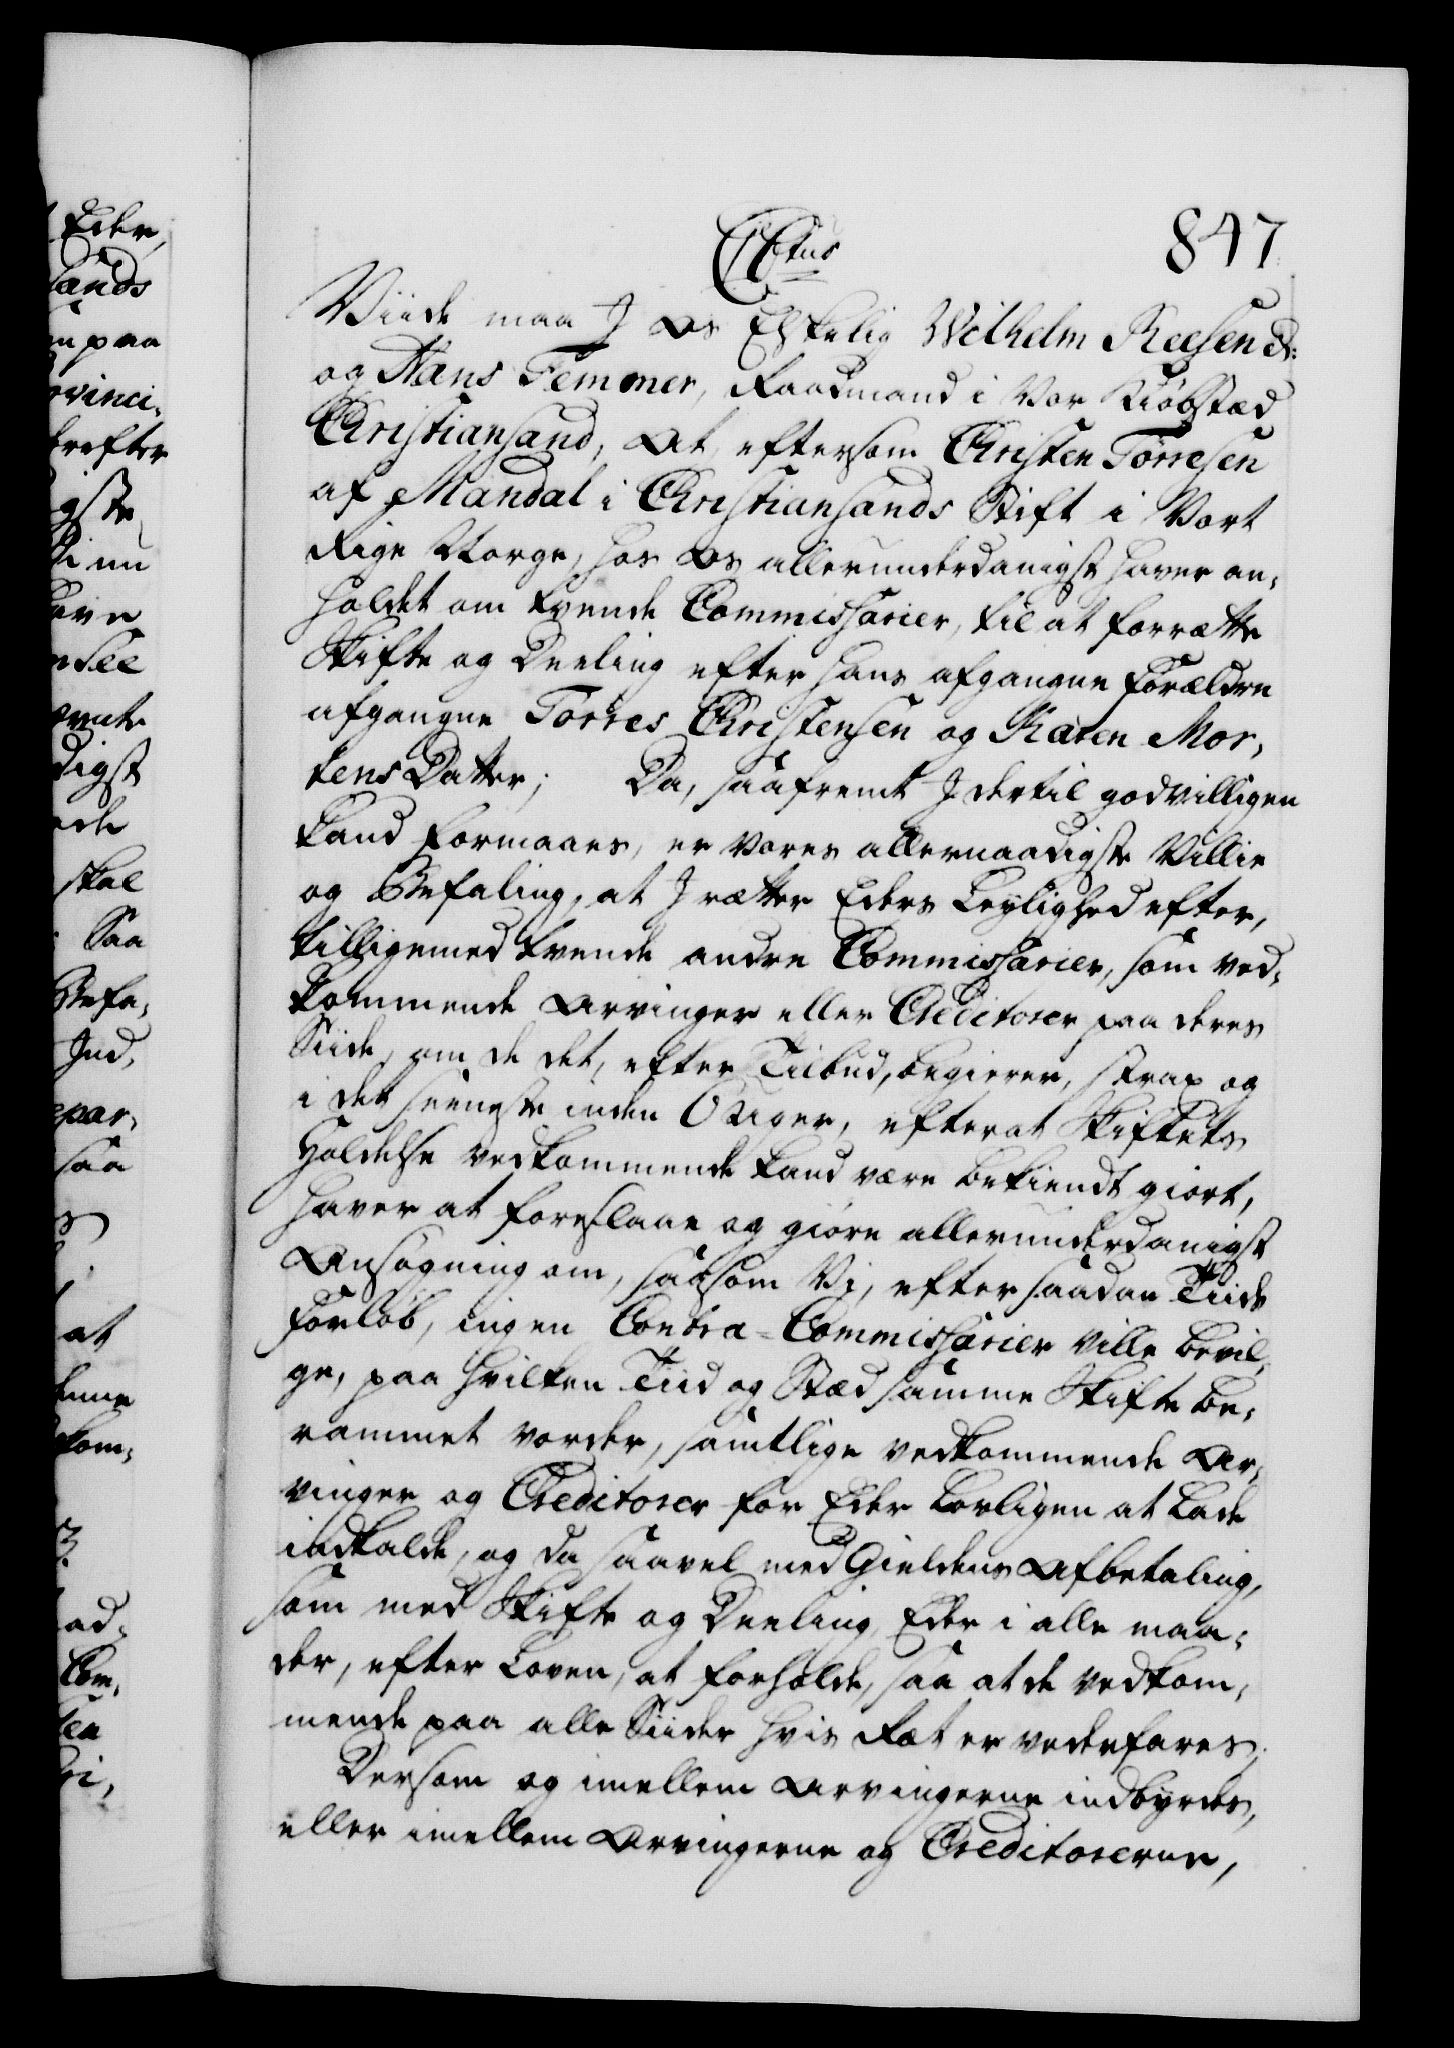 847
CCtus
Viide maa J Os Elskelig Wilhelm Reesen &:
og Hans Femmer, Raadmand i Vor Kiöbstæd
Christiansand, At, eftersom Christen Törresen
af Mandal i Christiansands Stift i Vort
Rige Norge, hos Os allerunderdanigst haver an-
holdet om tvende Commissarier, til at forrætte
Skifte og Deeling efter hans afgangne Forældre
afgangne Törres Christensen og Karen Mor-
tens Datter; Da, saafremt J dertil godvilligen
kand formaaes, er Vores allernaadigste Villie
og Befaling, at J rætter Eders Leylighed efter,
tilligemed tvende andre Commissarier, som ved-
kommende Arvinger eller Creditorer paa deres
Siide, om de det, efter Tilbud, begierer, strax og
i det seeneste inden 6 Uger, efterat Skiftets
Holdelse vedkommende kand være bekiendt giort,
haver at foreslaae og giöre allerunderdanigst
Ansögning om, saasom Vi, efter saadan Tiids
Forlöb, ingen Contra-Commissarier ville bevil-
ge, paa hvilken Tiid og Stæd samme Skifte be-
rammet vorder, samtlige vedkommende Ar-
vinger og Creditorer for Eder lovligen at lade
indkalde, og da saavel med Gieldens Afbetaling,
som med Skifte og Deeling, Eder i alle maa-
der, efter Loven, at forholde, saa at de vedkom-
mende paa alle Siider hvis Ræt er vederfares;
Dersom og imellem Arvingerne indbyrdes,
eller imellem Arvingerne og Creditorerne,